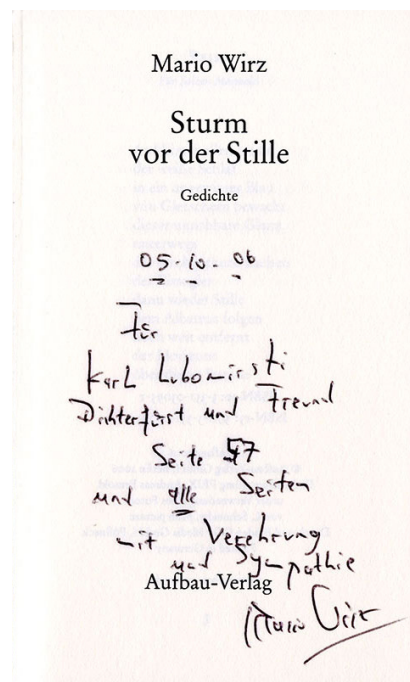 Mario Wirz
Sturm
vor der Stille
Gedichte
05.10.06
Für
Karl Lubomirski
Dichterfürst und Freund
Seite 57
und alle Seiten
mit Verehrung
und Sympathie
Aufbau-Verlag
Mario Wirz